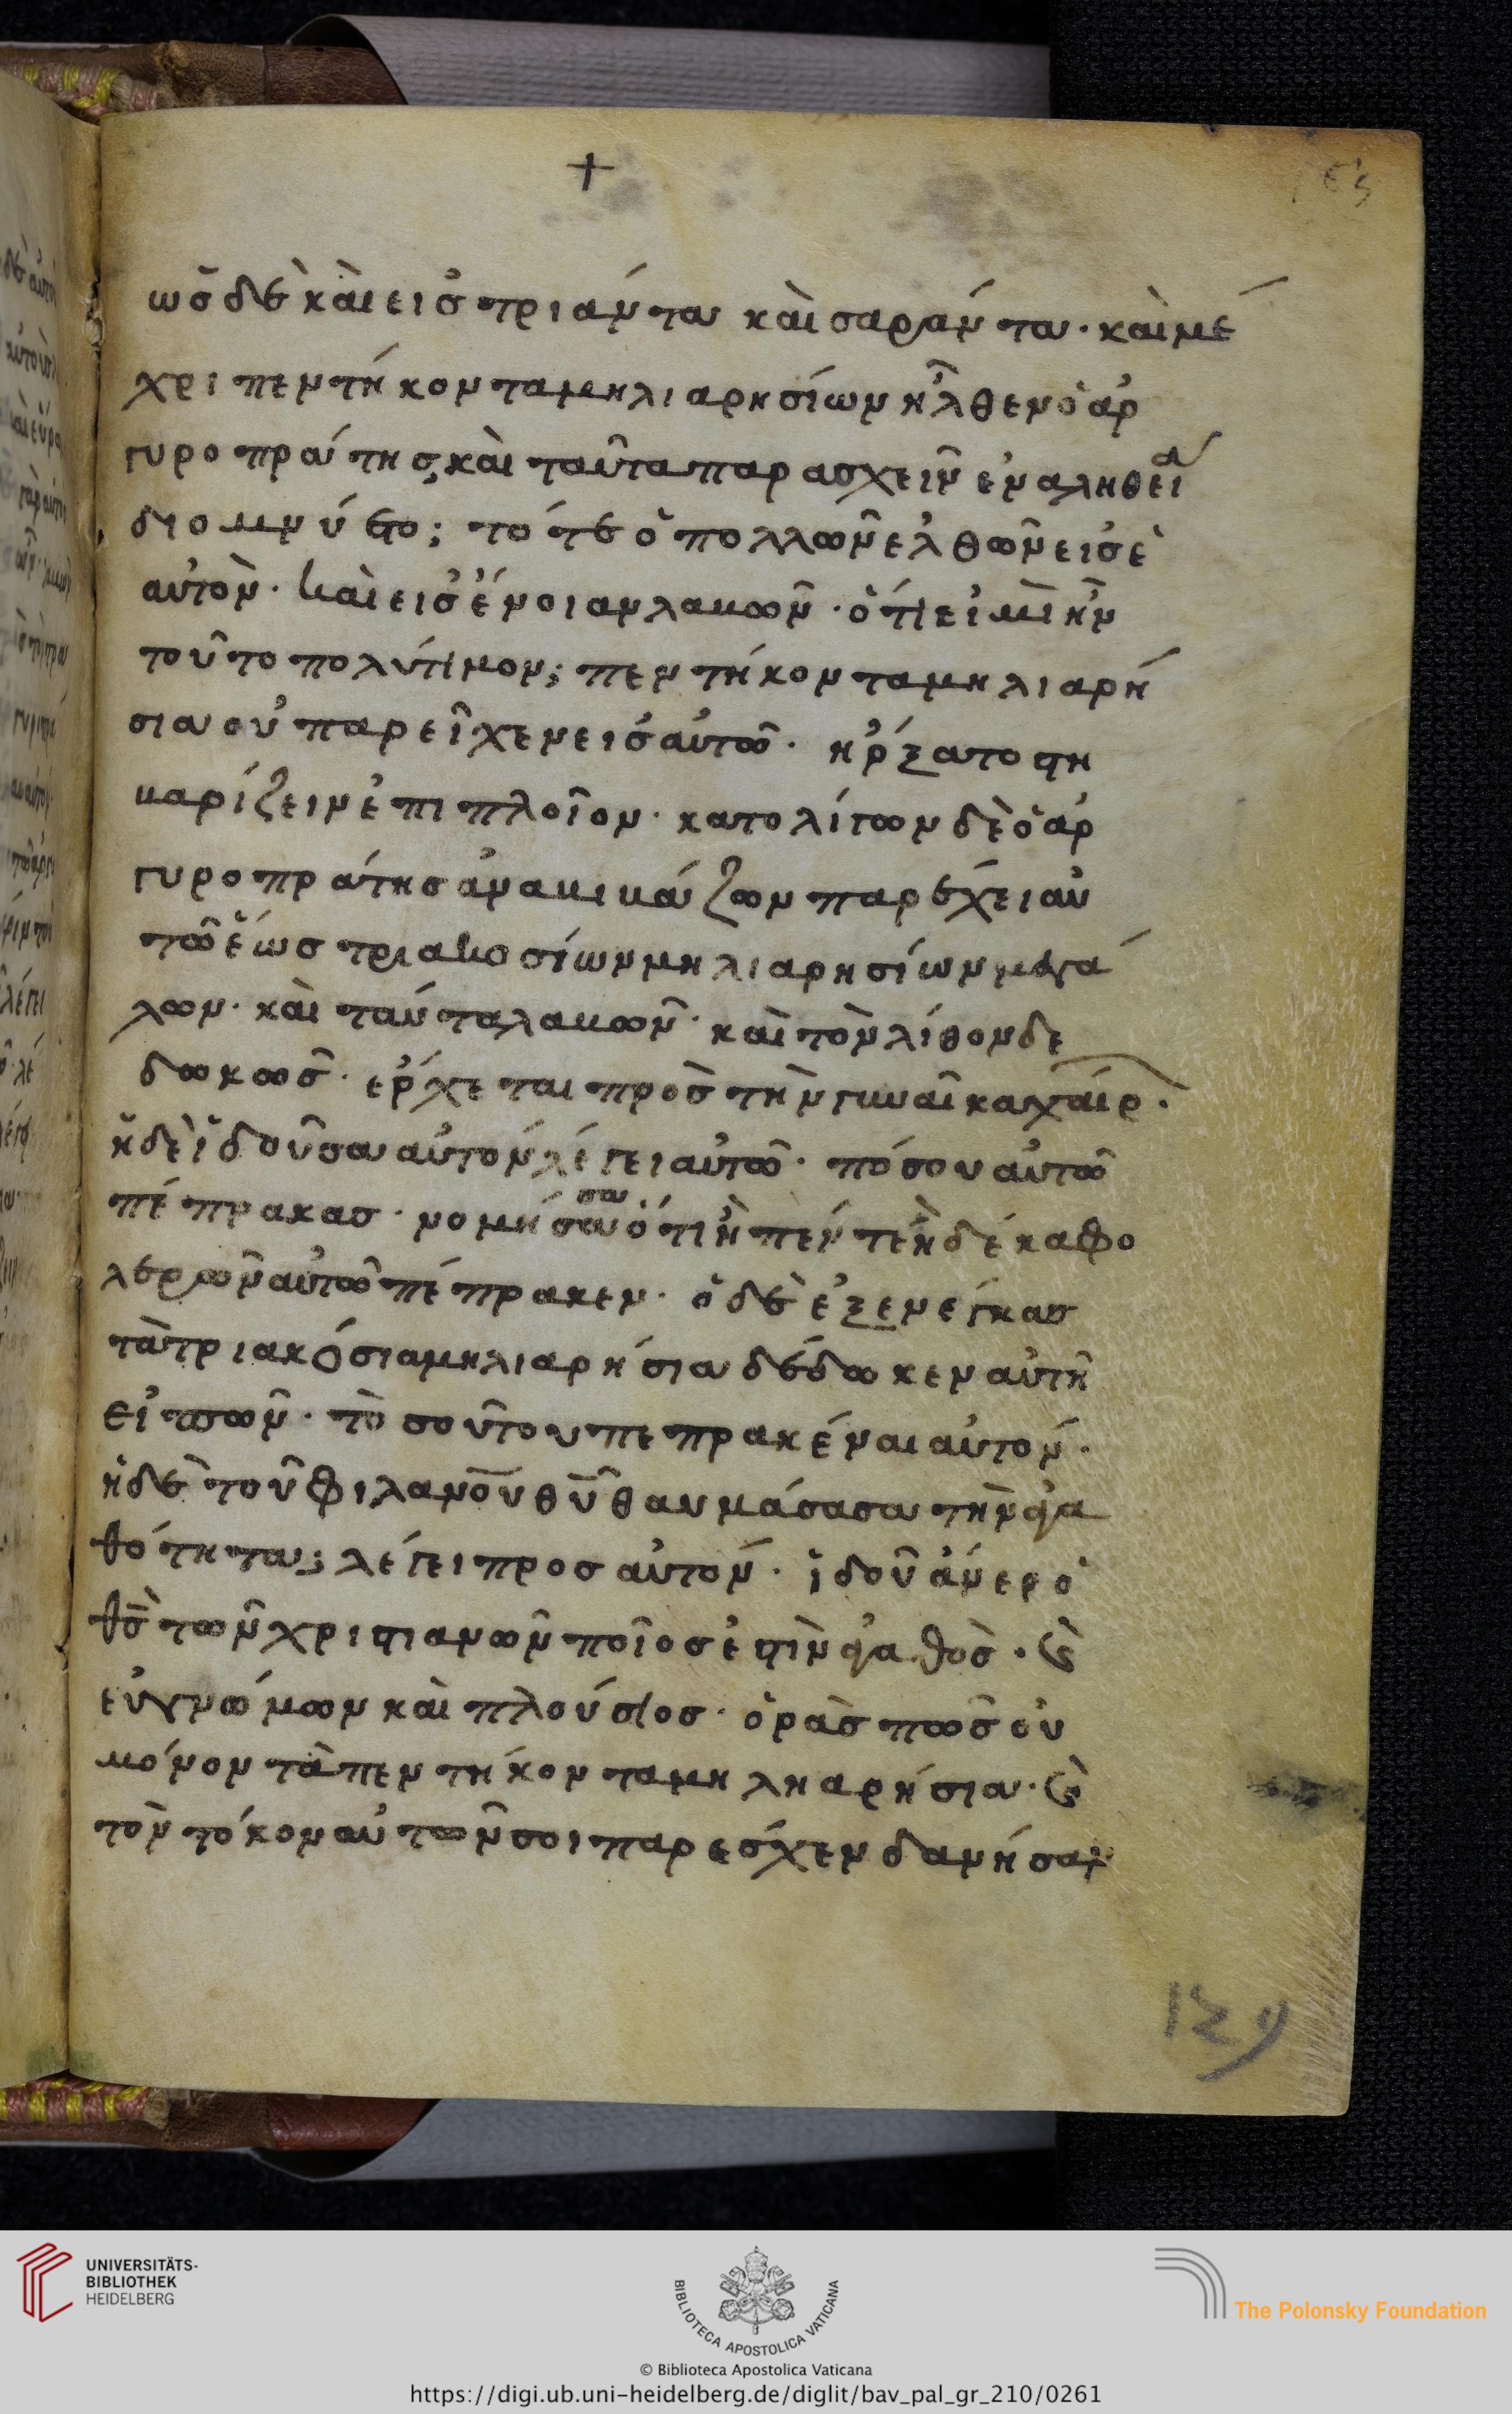 +
ὡσ δὲ καὶ εισ τριάντα καὶ σαράντα· καὶ μέ
χρι πεντήκοντα μηλιαρησίων ἦλθεν ὁ ἀρ
γυροπράτης, καὶ ταῦτα παρασχεῖν ἐν αληθεία
διομνύετο; τότε ὁ πολλῶν ελθῶν εισ ἑ
αυτὸν· καὶ εισ έννοιαν λακῶν· ὅτι εἰ μὴ ἦν
τοῦτο πολύτιμον; πεντήκοντα μηλιαρή
σια οὐ παρεῖχεν εισ αὐτῶ· ἠρξατο στη
καρίζειν ἐπιπλοῖον· κατολίγων δὲ ὁ ἀρ
γυροπράτησ ἀνακικάζων παρέχει αὐ
τῶ ἕωσ τριακοσίων μηλιαρησίων μεγά
λων· καὶ ταύτα λακῶν· καὶ τὸν λίθον δε
δωκῶσ· ερχεται πρὸσ τὴν γυναῖκα χαίρ·
ἡ δὲ ἰδοῦσα αὐτόν λέγει αὐτῶ· πόσου αὐτῶ
πέπρακασ· νομήσασα ὅτι ἢ πέντε ἢ δέκα φο
λερῶν αὐτῶ πέπρακεν· ὁ δὲ ἐξενείγκασ
τὰ τριακόσια μηλιαρήσια δέδωκεν αὐτῆ
εἰπῶν· τὸσούτου πεπρακέναι αὐτόν·
ἡ δὲ τοῦ φιλανοῦ θῦ θαυμάσασα τὴν ἀγα
θότητα; λέγει προσ αὐτόν· ἰδοῦ ἄνερ ὁ
θσ̀ τῶν χριστιανῶν ποῖοσ ἐστὶν ἀγαθὸσ· κ(αὶ)
εὐγνώμων καὶ πλούσιοσ· ὁρᾶσ πῶσ οὐ
μόνον τὰ πεντήκοντα μηληαρήσια· κ(αὶ)
τὸν τόκον αὐτῶν σοι παρεσχεν δανήσασ
129
UNIVERSITÄTS-
BIBLIOTHEK
HEIDELBERG
BIBLIOTECA APOSTOLICA VATICANA
The Polonsky Foundation
© Biblioteca Apostolica Vaticana
https://digi.ub.uni-heidelberg.de/diglit/bav_pal_gr_210/0261